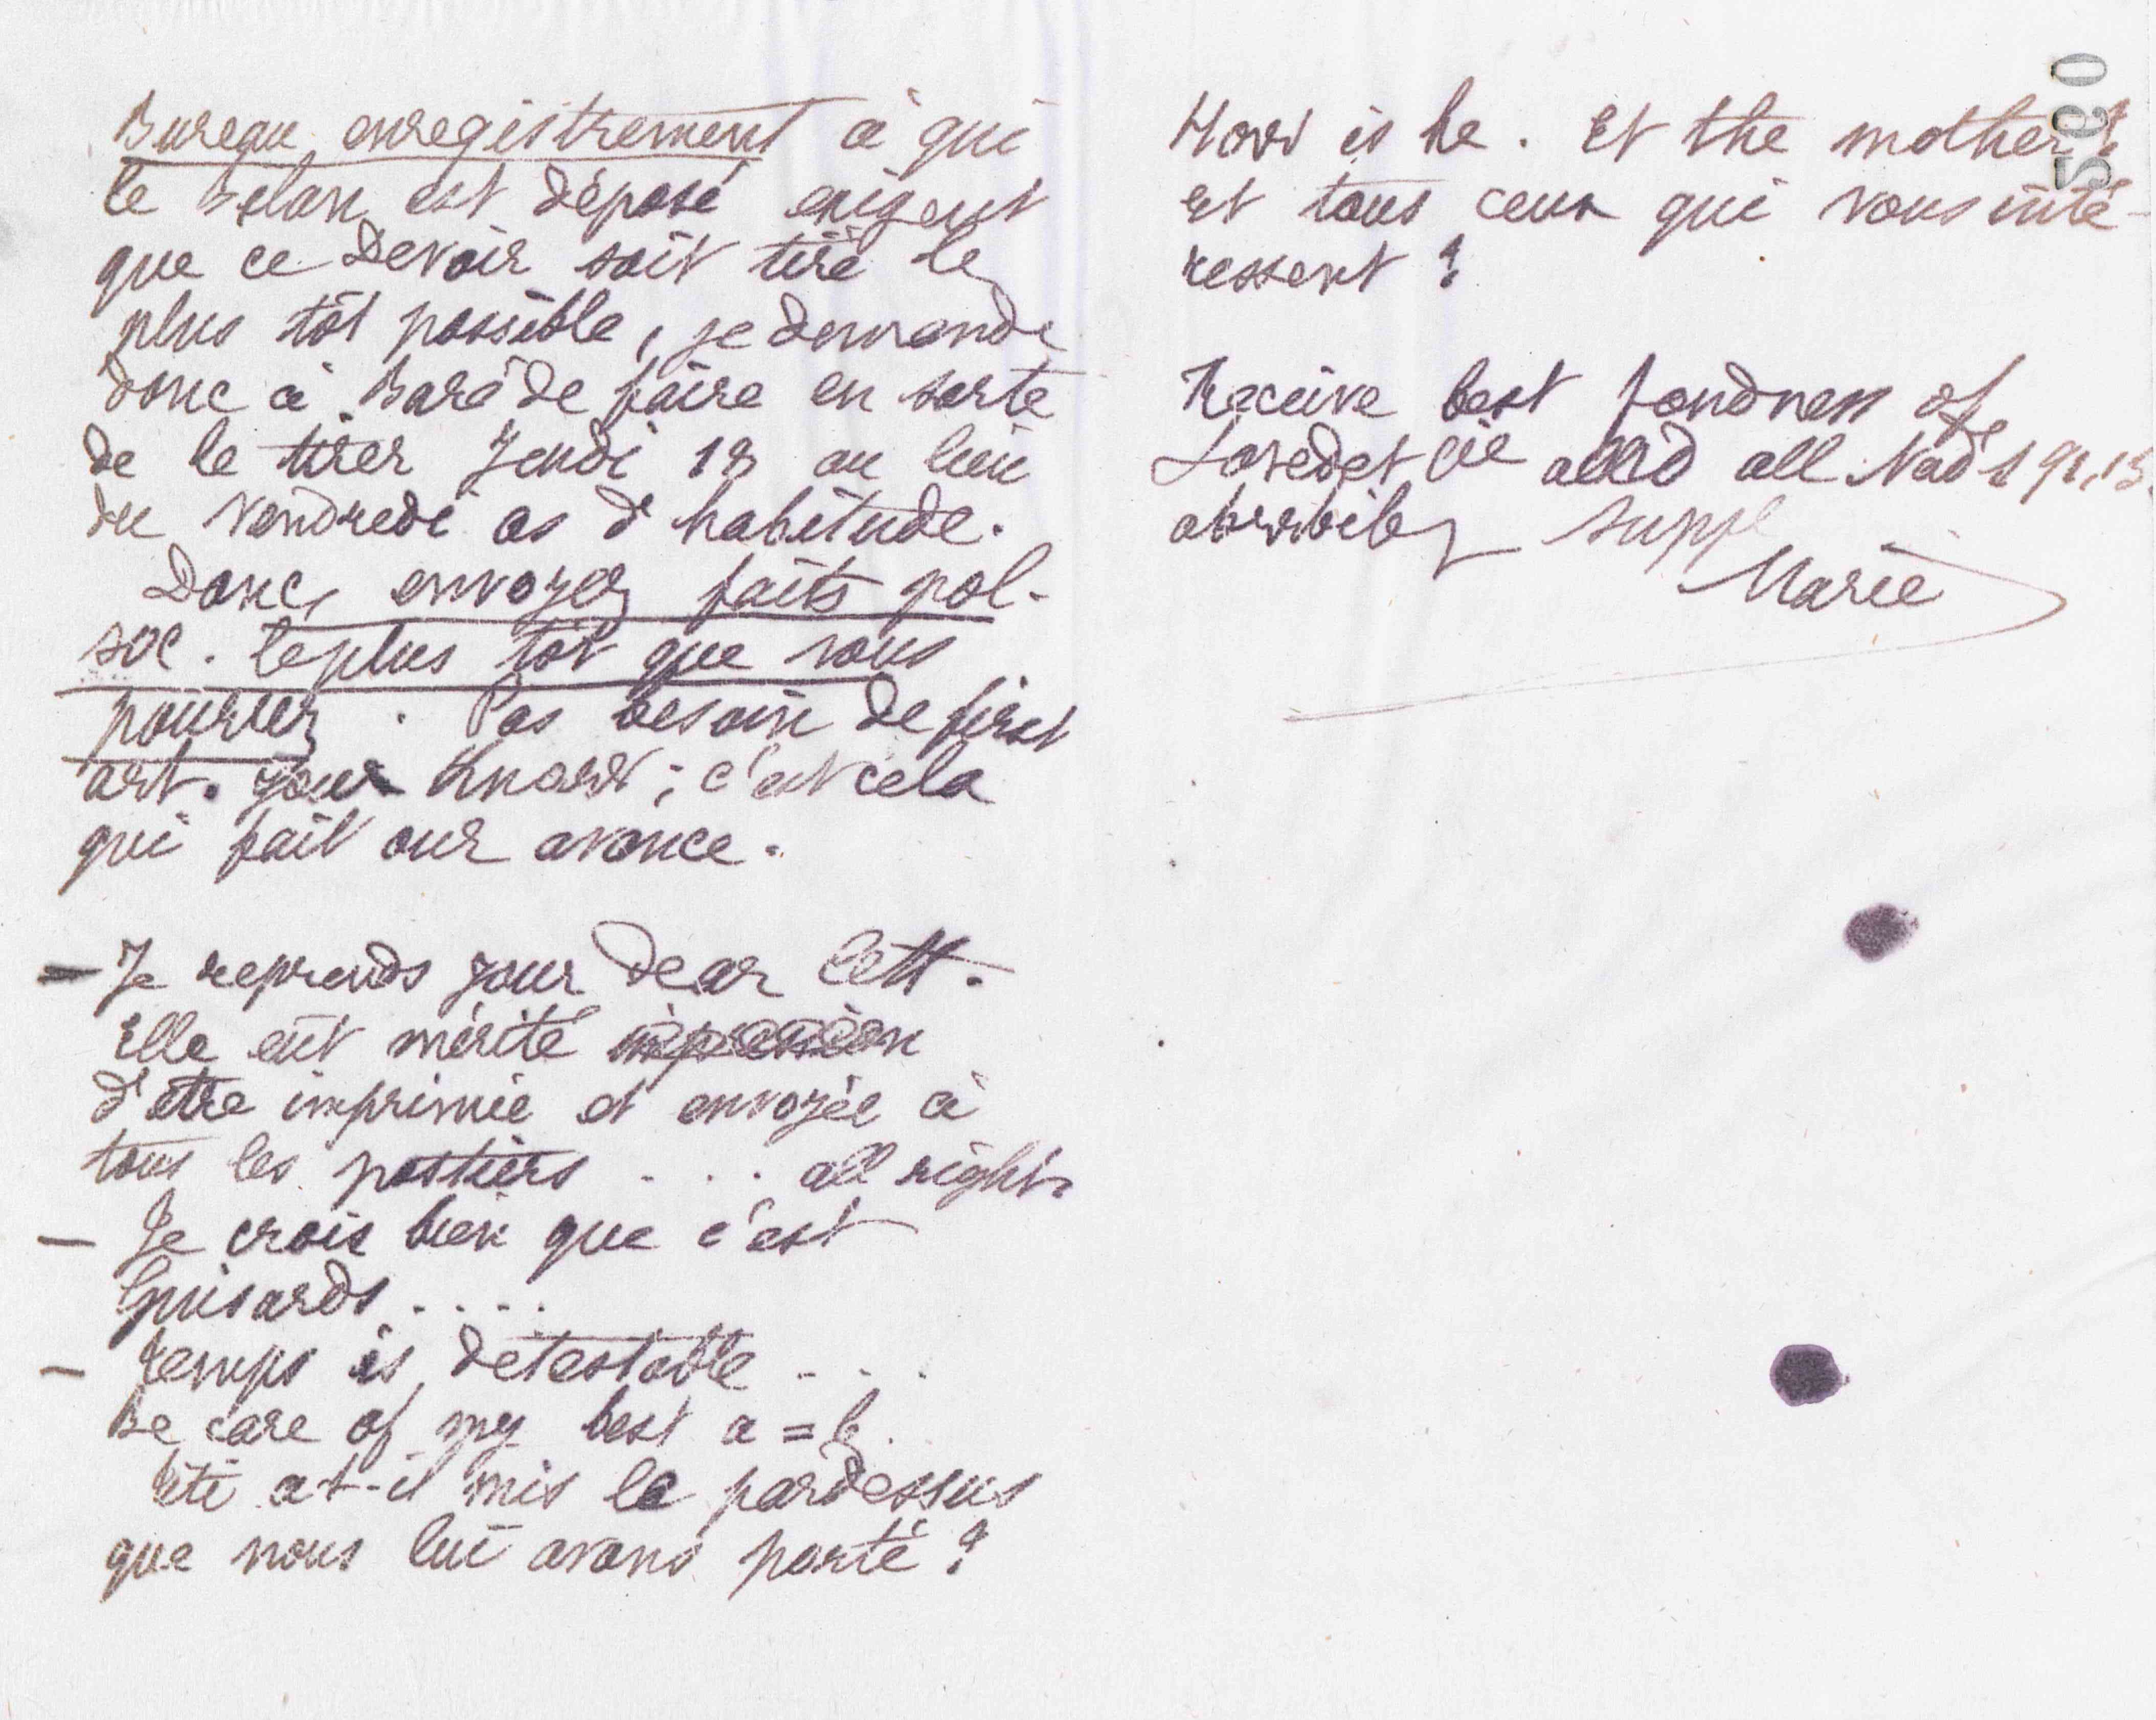 Bureau enregistrement à qui
le bilan est déposé exigeant
que ce Devoir soit tiré le
plus tôt possible, je demande
donc à Baré de faire en sorte
de le tirer Jeudi 18 au lieu
du vendredi as d'habitude.
Donc, envoyez faits pol-
soc. le plus tôt que vous
pourrez. Pas besoin de first
art. your know; c'est cela
qui fait our avance.
— Je reprends your dear lett.
Elle eût mérité impression
d'etre imprimée et envoyée à
tous les postiers . . . all right.
— Je crois bien que c'est
Guisards . . . .
— temps is détestable . . .
Be care of my best a = b.
Eté a-t-il mis le pardessus
que nous lui avons porté ?
How is he. Et the mother ?
Et tous ceux qui vous inté-
ressent ?
Receive best fondness of
and all
Marie
0355